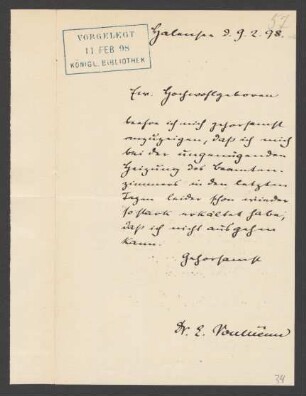 57
VORGELEGT
11 FEB 98
KÖNIGL. BIBLIOTHEK
Halensee d. 9. 2. 98.
Ew. Hochwohlgeboren
beehre ich mich gehorsamst
anzuzeigen, daß ich mich
bei der ungenügenden
Heizung des Beamten-
zimmers in den letzten
Tagen leider schon wieder
so stark erkältet habe,
daß ich nicht ausgehen
kann.
Gehorsamst
Dr. E.
39